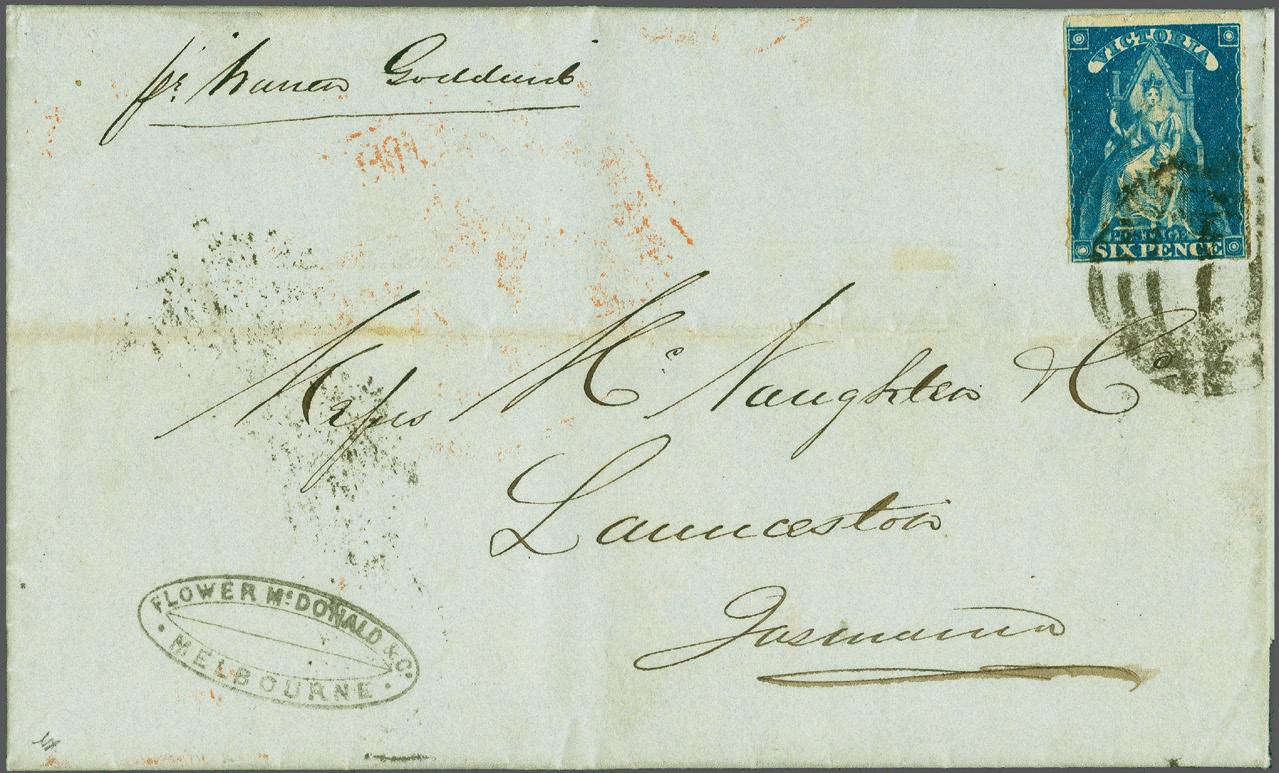 pr.
VICTORIA
POSTAGE
SIX PENCE
Messrs Mc Naughten & Co
Launceston
Tasmania
FLOWER Mc DONALD & Co.
MELBOURNE